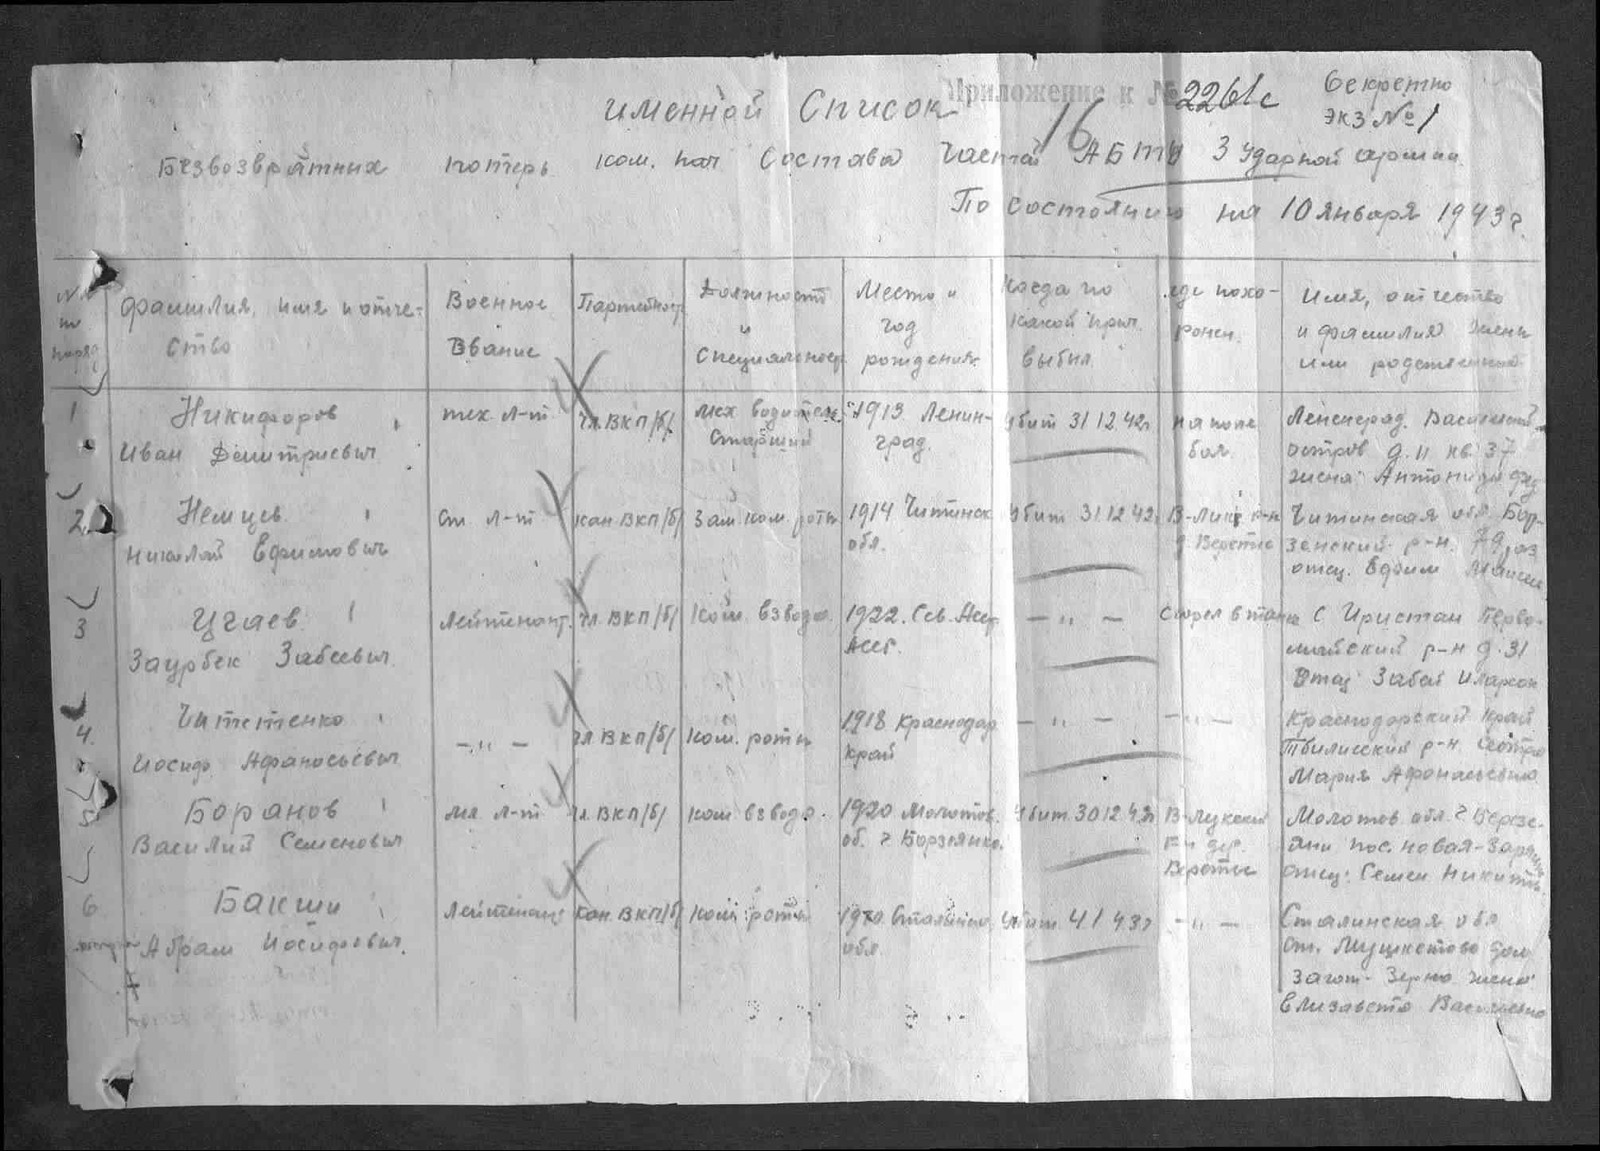 Приложение к № 2261с
Секретно
Экз № 1
Именной Список
16
Безвозвратных потерь ком. нач Состава Частей АБТВ 3 Ударной армии.
По состоянию на 10 января 1943 г.
№ по поряд
Фамилия, имя и отче-
ство
Военное
Звание
Партейност
Должность
и
специальност
Место и
год
рождения
Когда по
какой прич.
выбыл
где похо-
ронен.
Имя, отчество
и фамилия жены
или родственник
1
Никифоров
Иван Дмитриевич
тех. л-т
чл. ВКП/б/
мех водитель
Старший
1913. Ленин-
град.
Убит 31 12 42г
на поле
боя.
Ленинград. Васильевск
остров д. 11 кв 37
жена Антонида
2
Немцев
Николай Ефимович
ст л-т
кан. ВКП/б/
Зам. ком. роты
1914 Читинск
обл.
Убит 31 12 42г
В-Лук р-н
д Веретье
Читинская обл. Бор-
зенский р-н.
отец. Ефим
3
Цгаев
Заурбек Забеевич
Лейтенант.
чл. ВКП/б/
Ком. взвода
1922. Сев. Асет
Ассг.
— " —
сгорел в танке
С Иристан Перво-
майский р-н д. 31
Отец Забей
4.
Читетенко
Иосиф Афанасьевич
— " —
чл. ВКП/б/
Ком. роты
1918 Краснодар
край
— " —
— " —
Краснодарский край
Тбилисский р-н. сестра
Мария Афонасьевна
5
Боранов
Василий Семенович
мл. л-т
чл. ВКП/б/
ком взвода.
1920 Молотов.
об. г
Убит 30 12 42г
В-Лукский
р-н дер.
Веретье
Молотов. обл. г Березн-
пос. новая-
отец: Семен Никит
6
Бакши
Абрам Иосифович.
Лейтенант
Кан. ВКП/б/
Ком. роты
Сталинс
обл.
Убит 4 1 43г
— " —
Сталинская обл
ст. Мушкетово дом
загот-Зерно жена
Елизавета Васильевна